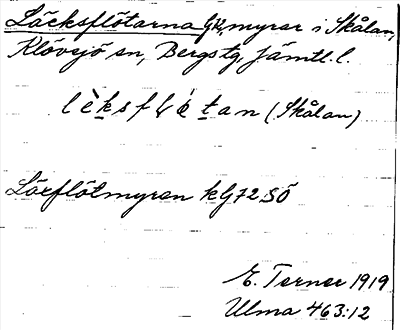 Läcksflötarna GK, myrar i Skålan,
Klövsjö sn, Bergs tg, Jämtl. l.
lèksfløtan (Skålan)
Läxflötmyran kG72SÖ
E. Terner 1919
Ulma 463:12